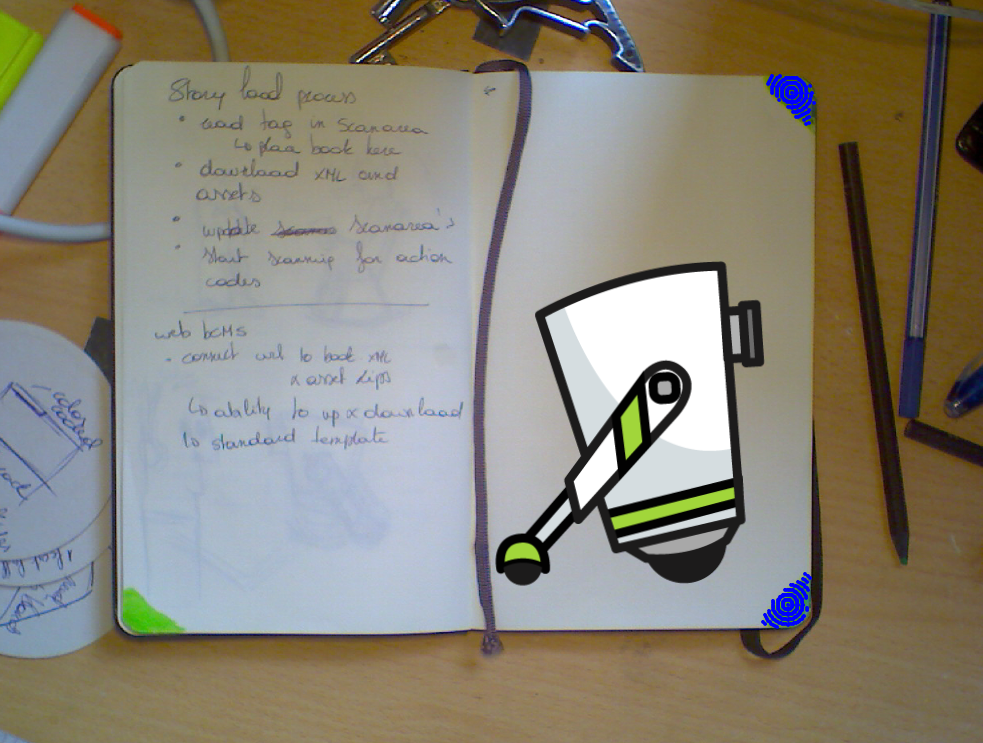 Story load process
• read tag in scanarea
↳ place book here
• download XML and
assets
• update scanarea's
• start scanning for action
codes
web bCMS
• connect url to book XML
& asset zips
↳ ability to up & download
↳ standard template
colored
code